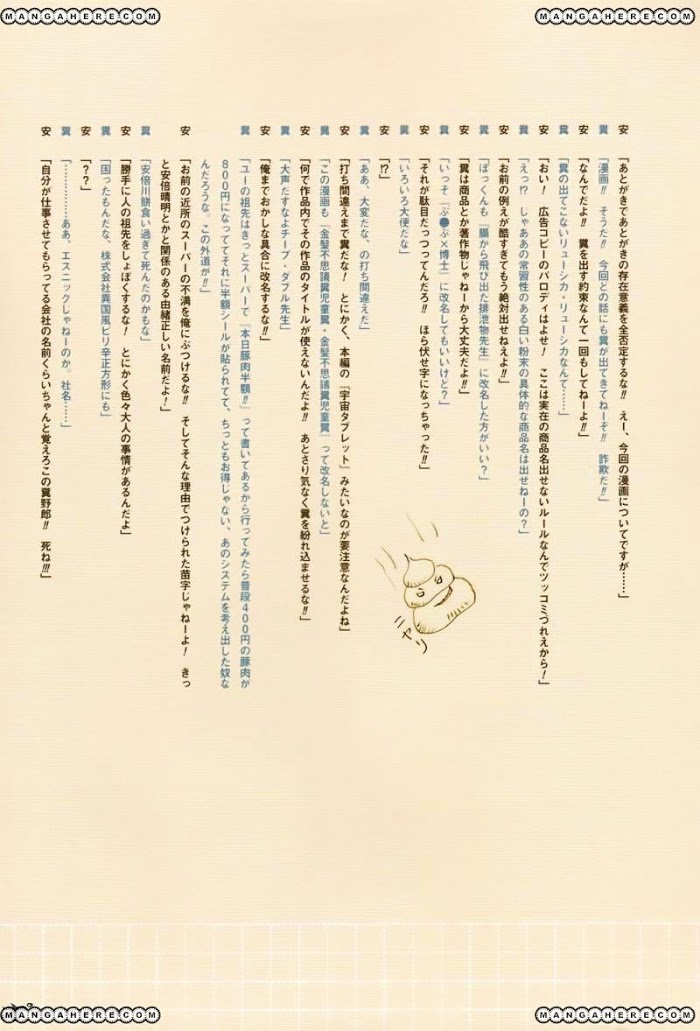 MANGAHERE.COM
MANGAHERE.COM
安「あとがきであとがきの存在意義を全否定するな!! えー、今回の漫画についてですが……」
糞「漫画!! そうだ!! 今回との話にも糞が出てきてねーぞ!! 詐欺だ!!」
安「なんでだよ!! 糞を出す約束なんて一回もしてねーよ!!」
糞「糞の出てこないリューシカ・リューシカなんて……」
安「おい! 広告コピーのパロディはよせ! ここは実在の商品名出せないルールなんでツッコミづれえから!」
糞「えっ!? じゃああの常習性のある白い粉末の具体的な商品名は出せねーの?」
安「お前の例えが酷すぎてもう絶対出せねえよ!!」
糞「ぼっくんも『腸から飛び出た排泄物先生』に改名した方がいい?」
安「糞は商品とか著作物じゃねーから大丈夫だよ!!」
糞「いっそ『ぷ●ぷ×博士』に改名してもいいけど?」
安「それが駄目だっつってんだろ!! ほら伏せ字になっちゃった!!」
糞「いろいろ大便だな」
安「!?」
糞「ああ、大変だな、の打ち間違えた」
安「打ち間違えまで糞だな! とにかく、本編の『宇宙タブレット』みたいなのが要注意なんだよね」
糞「この漫画も『金髪不思議糞児童糞・金髪不思議糞児童糞』って改名しないと」
安「何で作品内でその作品のタイトルが使えないんだよ!! あとさり気なく糞を紛れ込ませるな!!」
糞「大声だすなよチープ・ダブル先生」
安「俺までおかしな具合に改名するな!!」
糞「ユーの祖先はきっとスーパーで『本日豚肉半額!!』って書いてあるから行ってみたら普段400円の豚肉が
800円になっててそれに半額シールが貼られてて、ちっともお得じゃない、あのシステムを考え出した奴な
んだろうな。この外道が!!」
安「お前の近所のスーパーの不満を俺にぶつけるな!! そしてそんな理由でつけられた苗字じゃねーよ! きっ
と安倍晴明とかと関係のある由緒正しい名前だよ!」
糞「安倍川餅食い過ぎて死んだのかもな」
安「勝手に人の祖先をしょぼくするな! とにかく色々大人の事情があるんだよ」
糞「困ったもんだな、株式会社異国風ピリ辛正方形にも」
安「??」
糞「……………ああ、エスニックじゃねーのか。社名……」
安「自分が仕事させてもらってる会社の名前くらいちゃんと覚えろこの糞野郎!! 死ね!!!」
ニヤリ
MANGAHERE.COM
MANGAHERE.COM